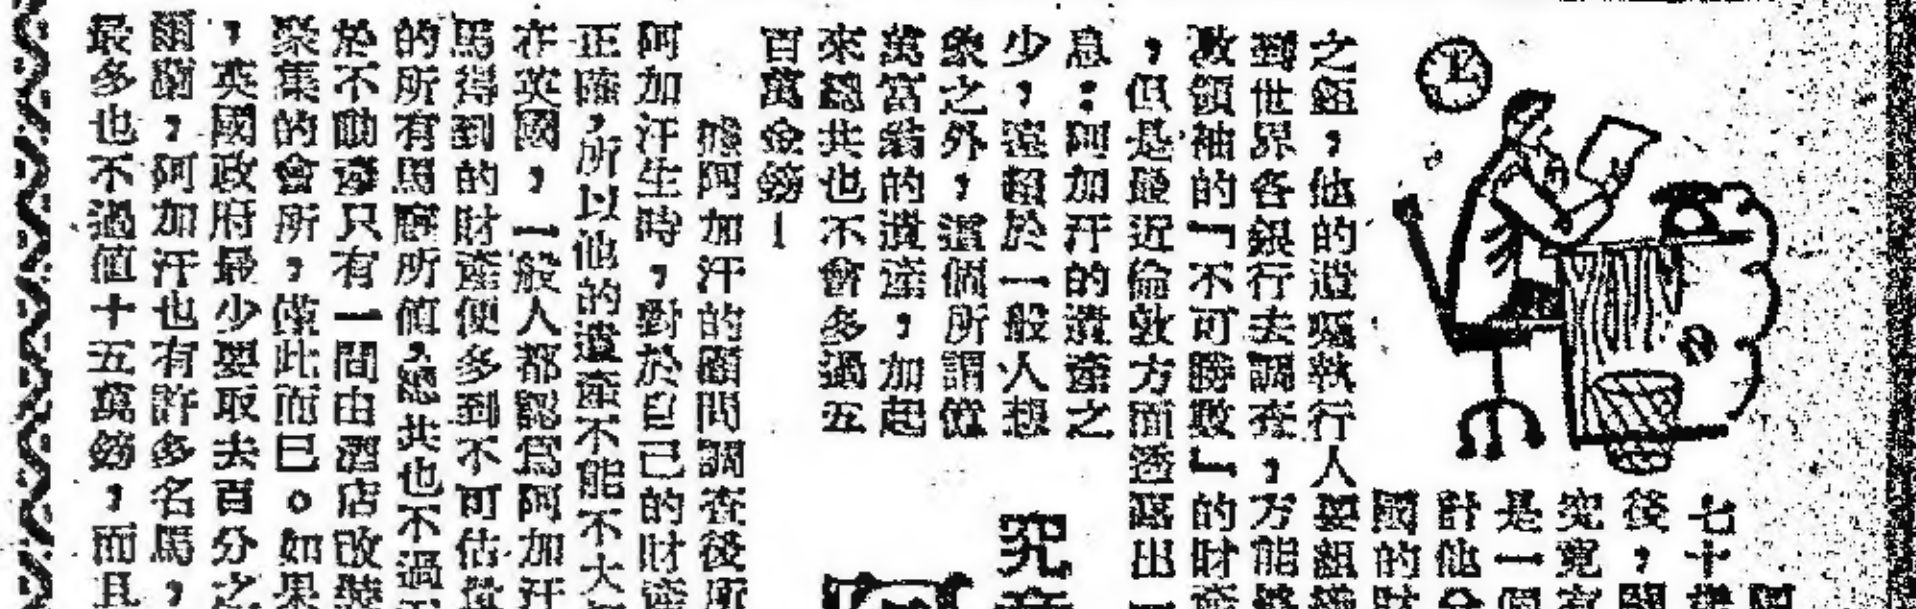 七十
後，
究竟
是一個
計他分
國的財
之鉅，他的遺囑執行人要組
到世界各銀行去調查，方能夠
敎領袖的「不可勝數」的財產
，但是最近倫敦方面透露出一
息：阿加汗的遺產之
少，遠超於一般人想
象之外，這個所謂億
萬富翁的遺產，加起
來總共也不會多過五
百萬金鎊！
究竟
據阿加汗的顧問調查後所
阿加汗生時，對於自己的財產
正確，所以他的遺產不能不大
在英國，一般人都認爲阿加汗
馬得到的財產便多到不可估計
的所有馬廐所值，總共也不過
於不動產只有一間由酒店改裝
聚集的會所，僅此而已。如果
，英國政府最少要取去百分之
爾蘭，阿加汗也有許多名馬，
最多也不過値十五萬鎊，而且